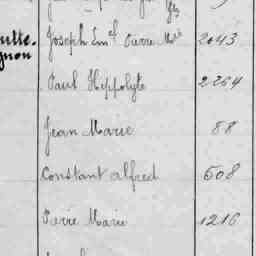 Joseph Em^el Pierre M^ie 2043
Paul Hippolyte 2264
Jean Marie 88
Constant alfred 508
Pierre Marie 1216